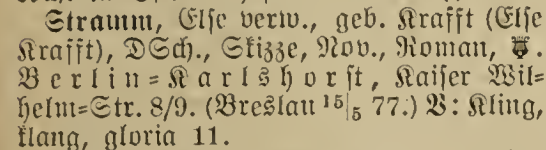 Stramm, Else verw., geb. Krafft (Else
Krafft), DSch., Skizze, Nov., Roman,
Berlin=Karlshorst, Kaiser Wil=
helm=Str. 8/9. (Breslau 15|5 77.) V: Kling,
klang, gloria 11.